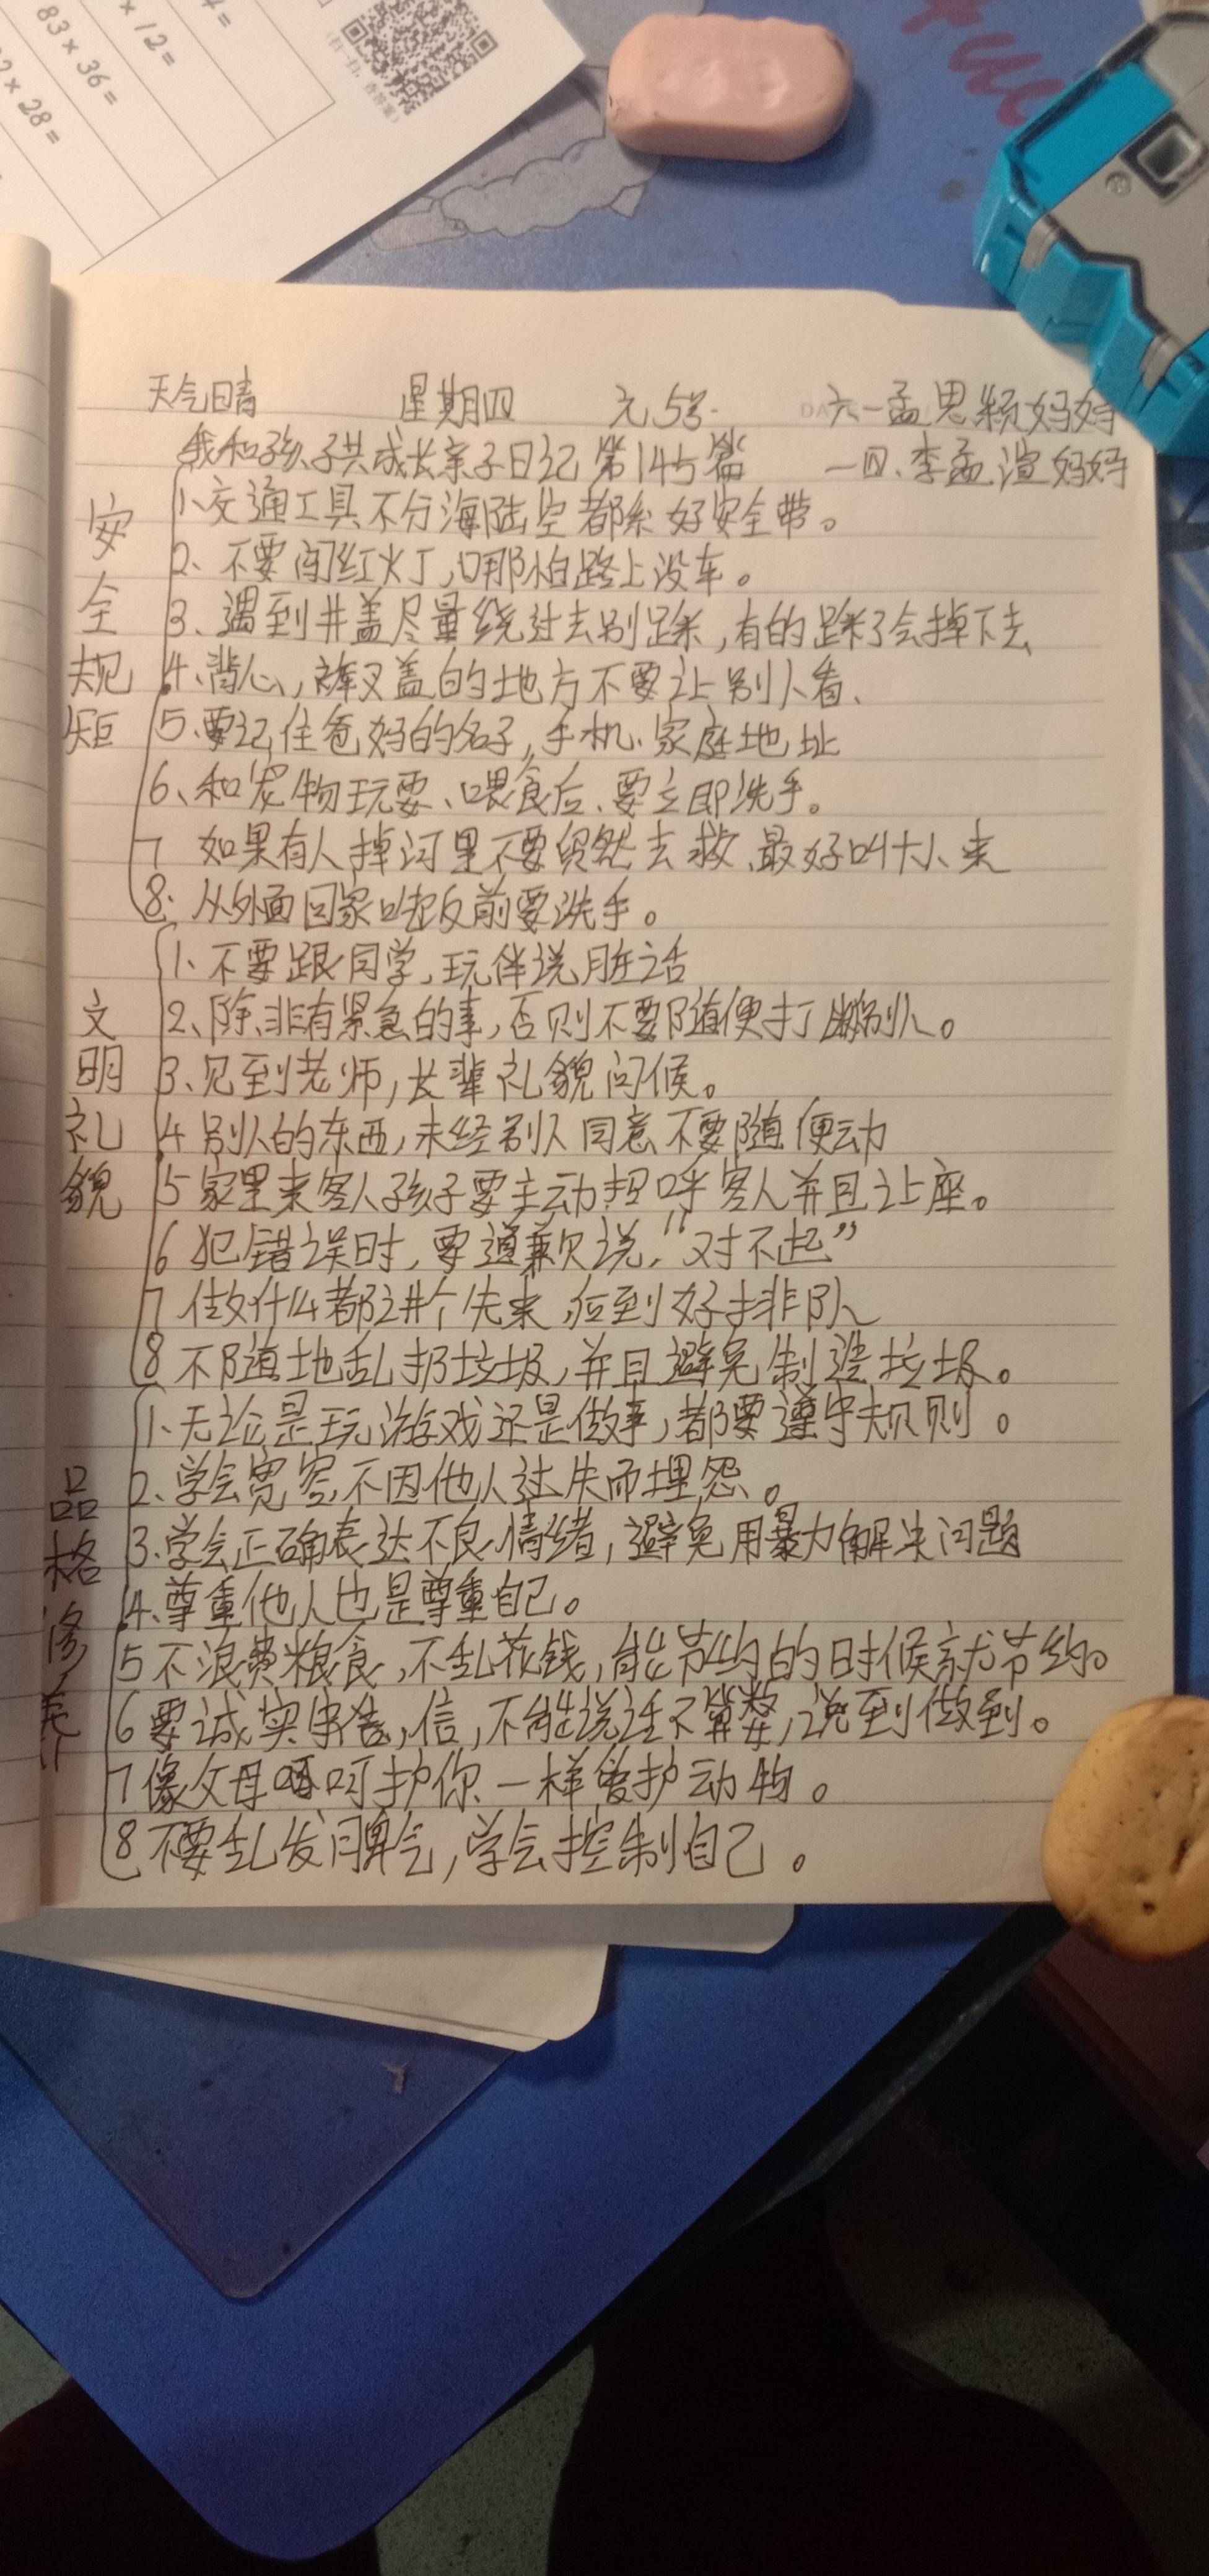 83×36=
×12=
×28=
天气晴 星期四 元.5号. 六一孟思颖妈妈
我和孩子共成长亲子日记第145篇 一四、李孟渲妈妈
安全规矩
1、交通工具不分海陆空都系好安全带。
2、不要闯红火丁,哪怕路上没车。
3、遇到井盖尽量绕过去别踩,有的踩了会掉下去
4、背心,裤叉盖的地方不要让别人看、
5、要记住爸妈的名子,手机、家庭地址
6、和宠物玩耍、喂食后、要立即洗手。
7 如果有人掉河里不要贸然去救、最好叫大人来
8、从外面回家吃饭前要洗手。
文明礼貌
1、不要跟同学,玩伴说脏话
2、除非有紧急的事,否则不要随便打断别人。
3、见到老师,长辈礼貌问候。
4 别人的东西,未经别人同意不要随便动
5 家里来客人孩子要主动招呼客人并且让座。
6 犯错误时,要道歉说,“对不起”
7 做什么都讲个先来后到好排队
8 不随地乱扔垃圾,并且避免制造垃圾。
品格修养
1、无论是玩游戏还是做事,都要遵守规则。
2、学会宽容,不因他人过失而埋怨。
3、学会正确表达不良情绪,避免用暴力解决问题
4、尊重他人也是尊重自己。
5 不浪费粮食,不乱花钱,能节约的时候就节约。
6 要诚实守信,不能说话不算数,说到做到。
7 像父母呵护你一样爱护动物。
8 不要乱发脾气,学会控制自己。